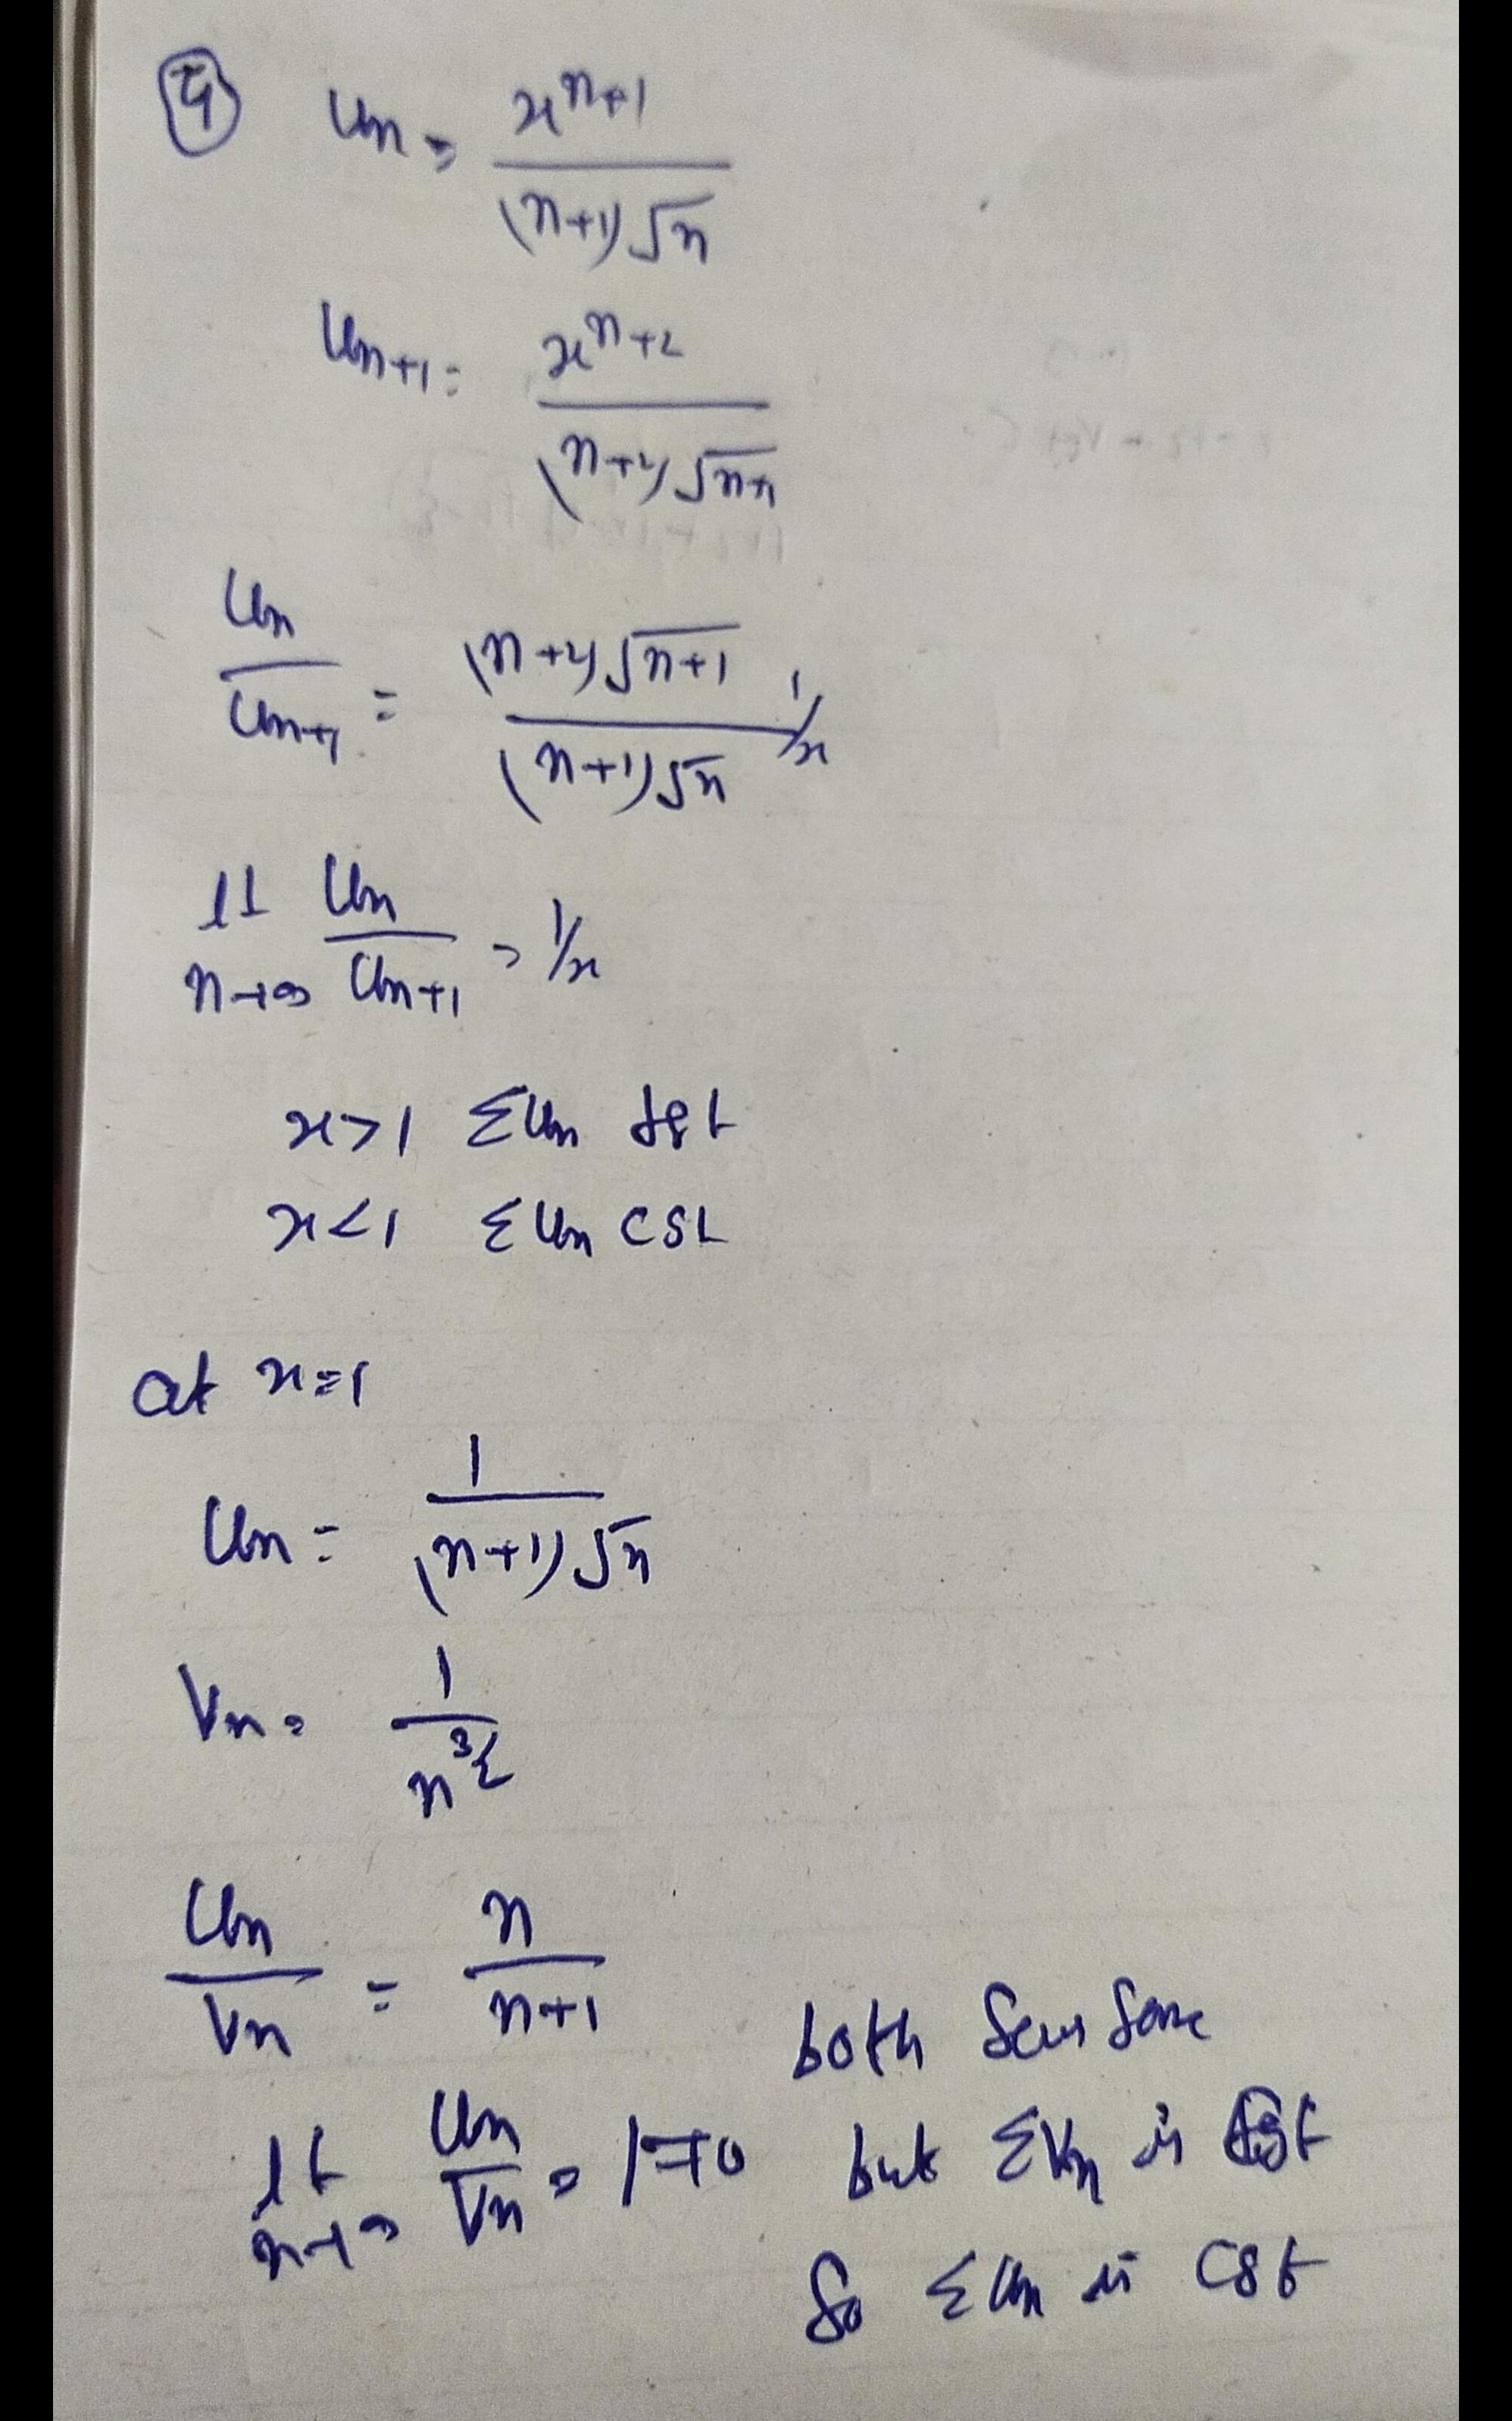 ④ Un = x^(n+1) / ((n+1)√n)
Un+1 = x^(n+2) / ((n+2)√(n+1))
Un / Un+1 = ((n+2)√(n+1)) / ((n+1)√n) 1/x
lt n→∞ Un / Un+1 = 1/x
x>1 ΣUn dgt
x<1 ΣUn cgt
at x=1
Un = 1 / ((n+1)√n)
Vn = 1 / n^(3/2)
Un / Vn = n / (n+1)
both Same
lt n→∞ Un / Vn = 1≠0 but ΣVn is cgt
So ΣUn is cgt